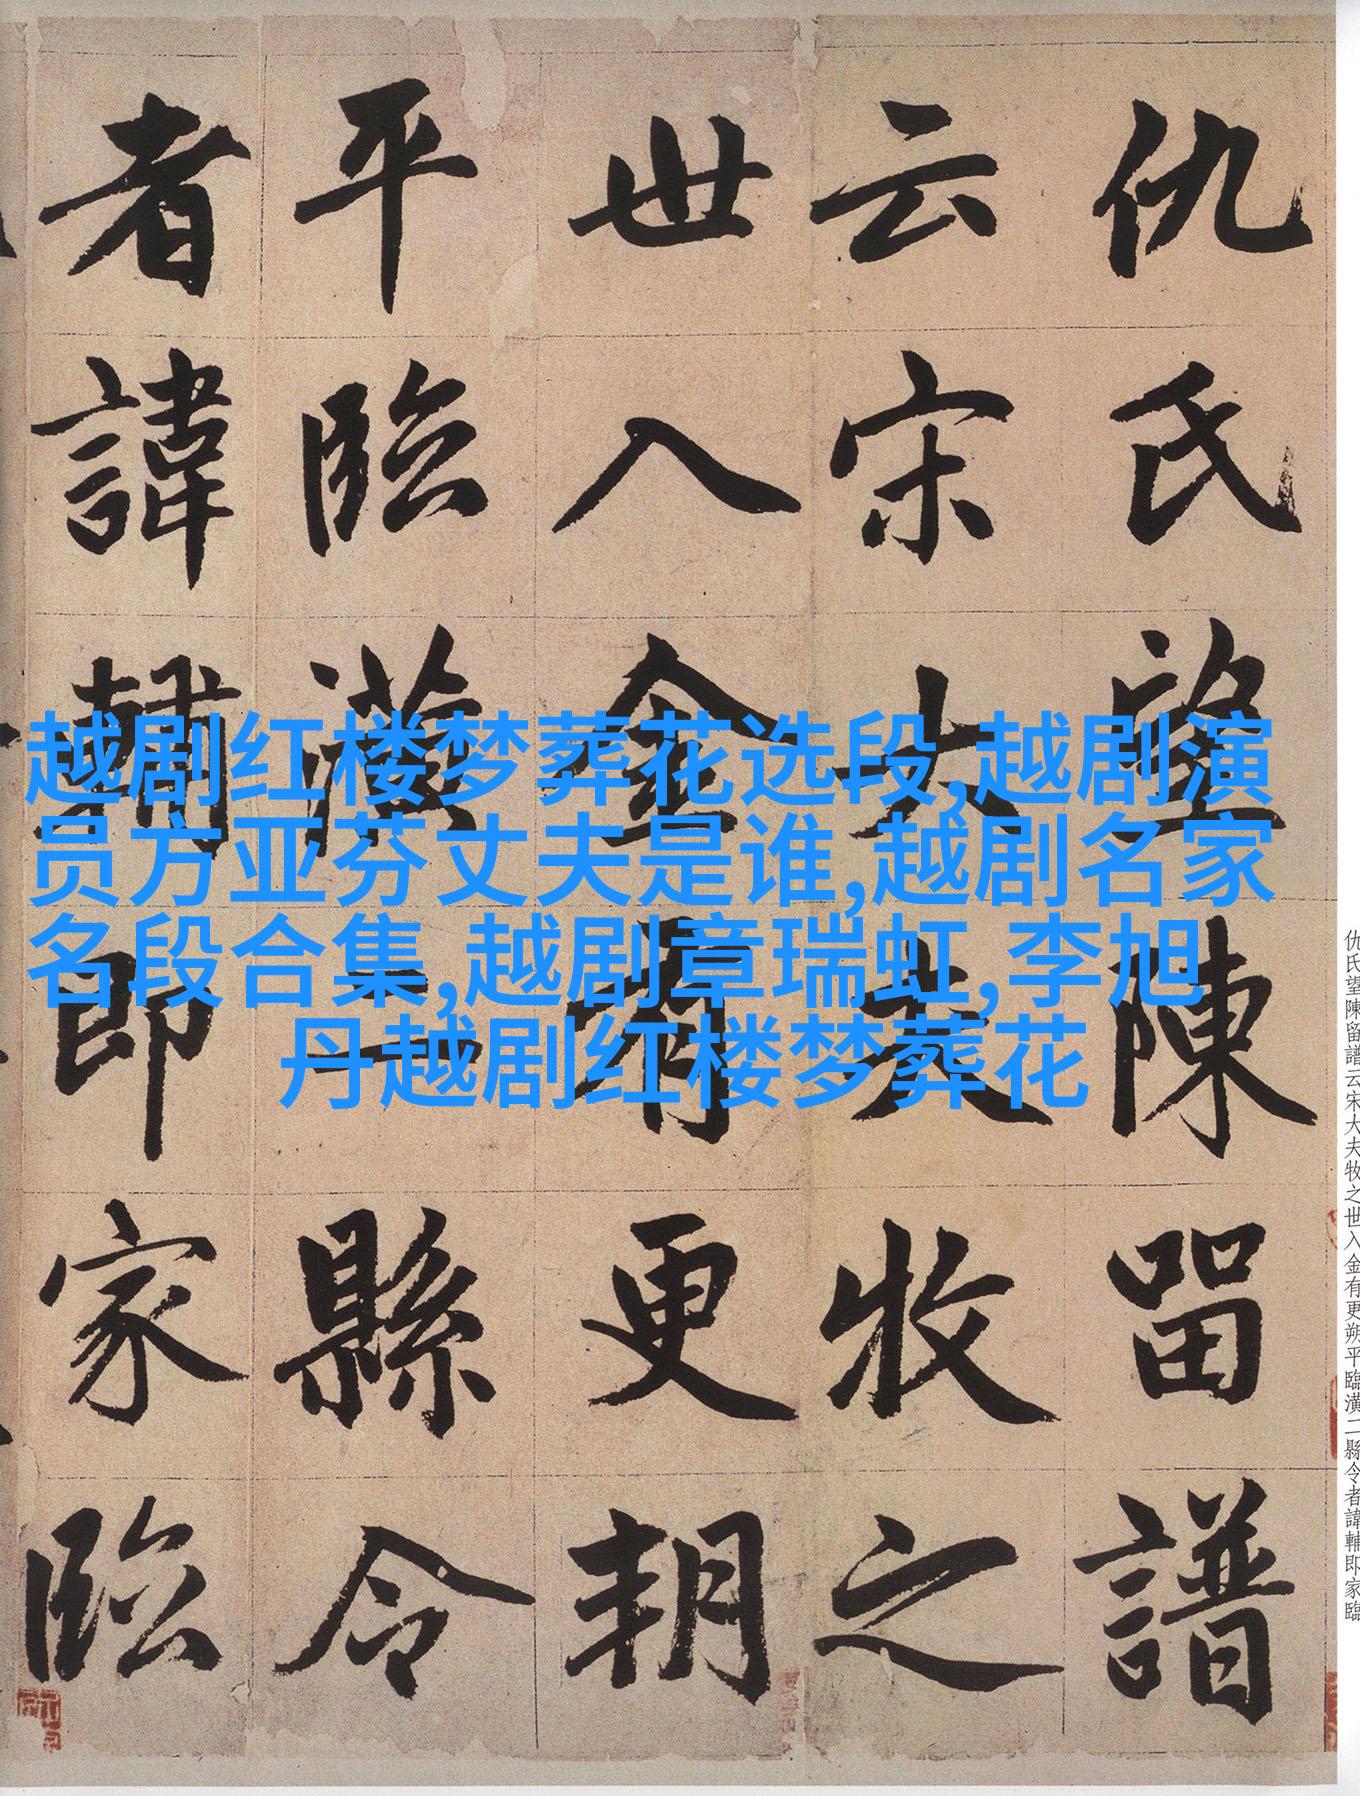 仇氏望陳留譜
云宋大夫牧之
世入金有更朔
平臨潢二縣令
者諱輔即家臨
越剧红楼梦葬花选段,越剧演
员方亚芬丈夫是谁,越剧名家
名段合集,越剧章瑞虹,李旭
丹越剧红楼梦葬花
仇氏望陳留譜云宋大夫牧之世入金有更朔平臨潢二縣令者諱輔即家臨